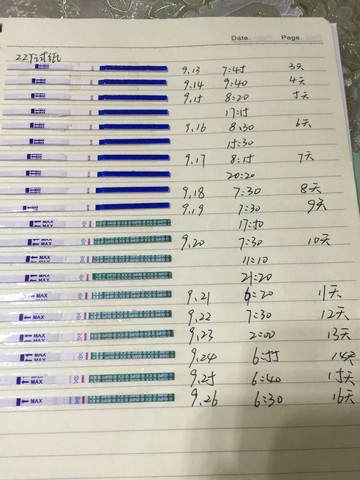 Date. Page.
22个试纸
9.13 7:45 3天
9.14 9:40 4天
9.15 8:20 5天
17:15
9.16 8:30 6天
15:30
9.17 8:15 7天
20:20
9.18 7:30 8天
9.19 7:30 9天
17:50
MAX 9.20 7:30 10天
MAX 11:10
MAX 21:20
MAX 9.21 6:20 11天
MAX 9.22 7:30 12天
MAX 9.23 2:00 13天
MAX 9.24 6:55 14天
MAX 9.25 6:40 15天
MAX 9.26 6:30 16天